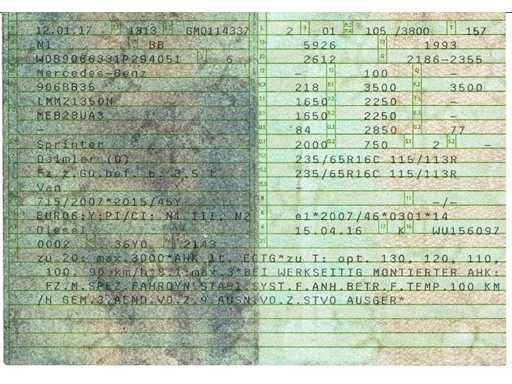 12.01.17 1313 GM0114337 2 01 105 /3800 157
N1 BB 5926 1993
WDB9066331P294051 6 2612 2186-2355
Mercedes-Benz - 100 -
906BB35 218 3500 3500
LMMZ1350N 1650 2250 -
MEB28UA3 1650 2250 -
- 84 2850 77
Sprinter 2000 750 2 -
Daimler (D) 235/65R16C 115/113R
Fz.z.Gü.bef. b. 3,5 t 235/65R16C 115/113R
Van -
715/2007*2015/45Y -/-
EURO6;Y;PI/CI; N1 III, N2 e1*2007/46*0301*14
Diesel 15.04.16 K WU156097
0002 36Y0 2143
zu 20: max.3000*AHK lt. EGTG*zu T: opt. 130, 120, 110,
100, 90 km/h*S.1:max.3*BEI WERKSEITIG MONTIERTER AHK:
FZ.M.SPEZ.FAHRDYN.STABI.SYST.F.ANH.BETR.F.TEMP.100 KM
/H GEM.3.AEND.VO.Z.9.AUSN.VO.Z.STVO AUSGER*